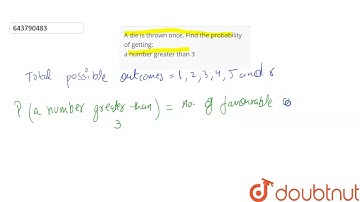 643790483
A die is thrown once. Find the probability
of getting:
a number greater than 3
Total possible outcomes = 1, 2, 3, 4, 5 and 6
P (a number greater than 3) = no. of favourable
doubtnut